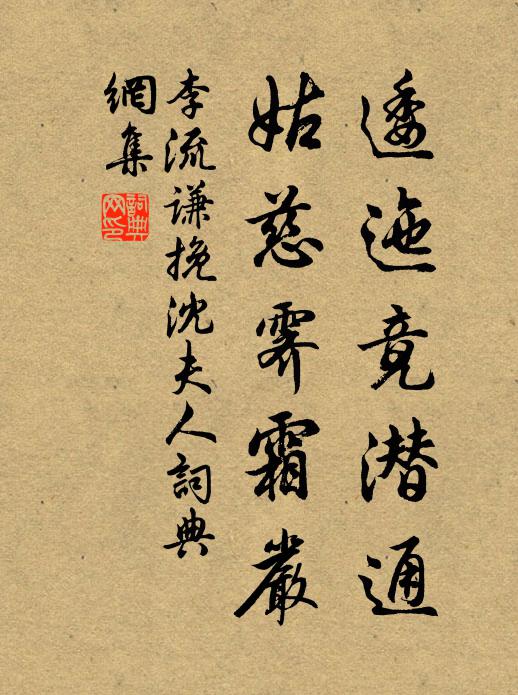 逶迤竟潜通
姑慈霽霜嚴
李流谦挽沈夫人詞典
網集
詞典網印